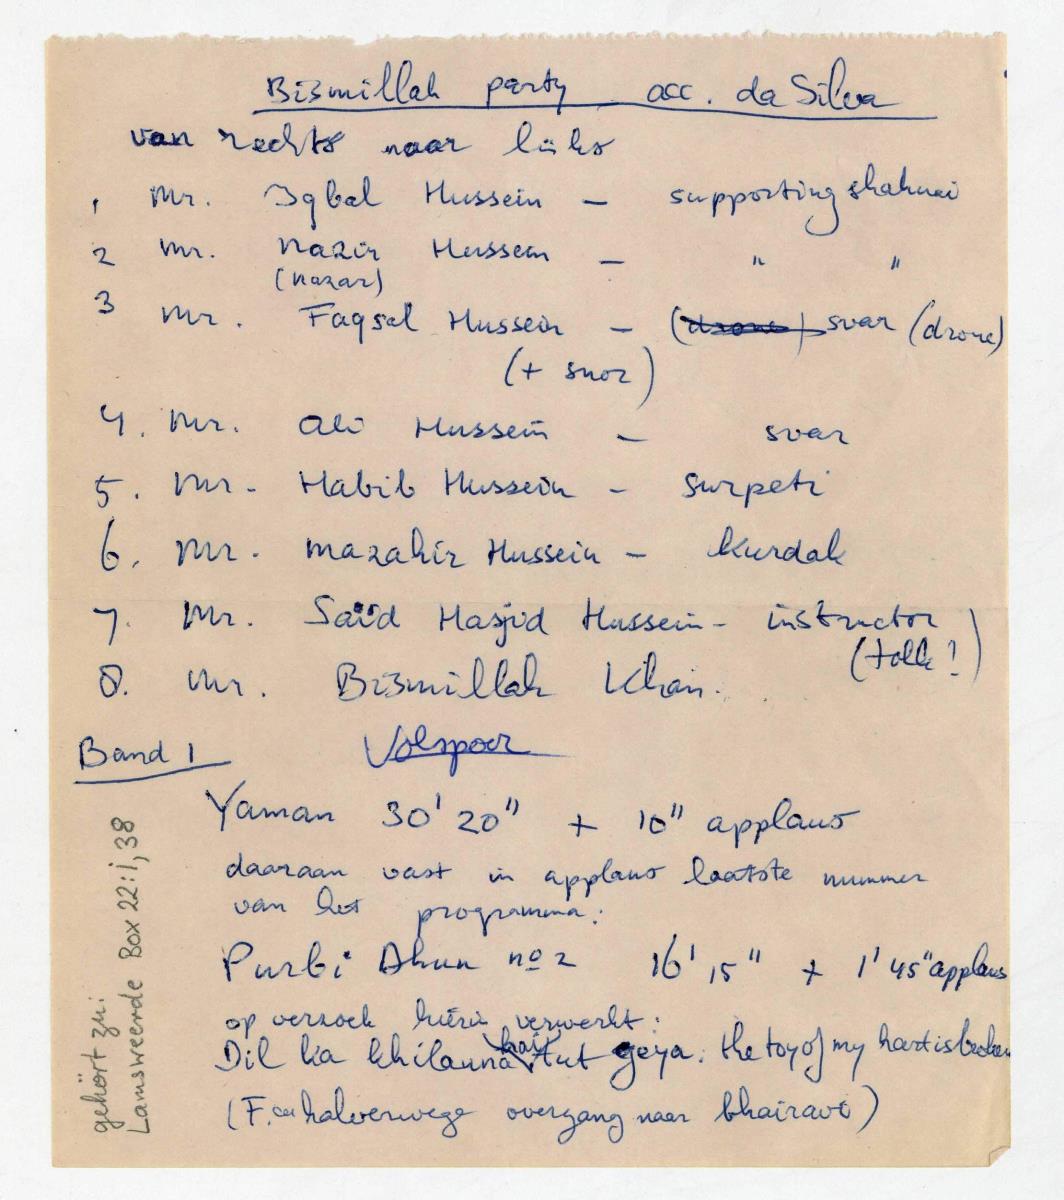 Bismillah party acc. da Silva
van rechts naar links
1 Mr. Iqbal Hussein – supporting shahnai
2 Mr. Nazir Hussein – " "
(nazar)
3 Mr. Faqsal Hussein – (drone) svar (drone)
(+ snor)
4. Mr. Ali Hussein – svar
5. Mr. Habib Hussein – surpeti
6. Mr. Mazahir Hussein – Kurdak
7. Mr. Saïd Hasjid Hussein – instructor
(tolk!)
8. Mr. Bismillah Khan.
Band 1 Volspoor
Yaman 30' 20" + 10" applaus
daaraan vast in applaus laatste nummer
van het programma:
Purbi Dhun no 2 16' 15" + 1' 45" applaus
op verzoek hierin verwerkt:
hai
Dil ka khilauna tut geya: the toy of my hart is broken
(F. halverwege overgang naar bhairavi)
gehört zu:
Lamsweerde Box 22:1,38